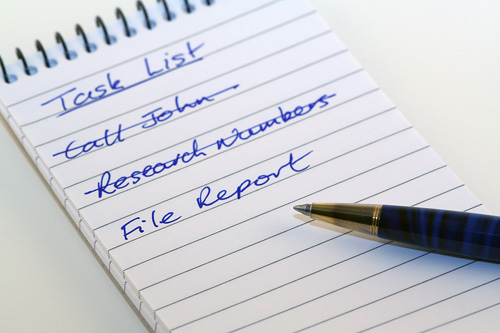 Task List
Call John
Research Numbers
File Report